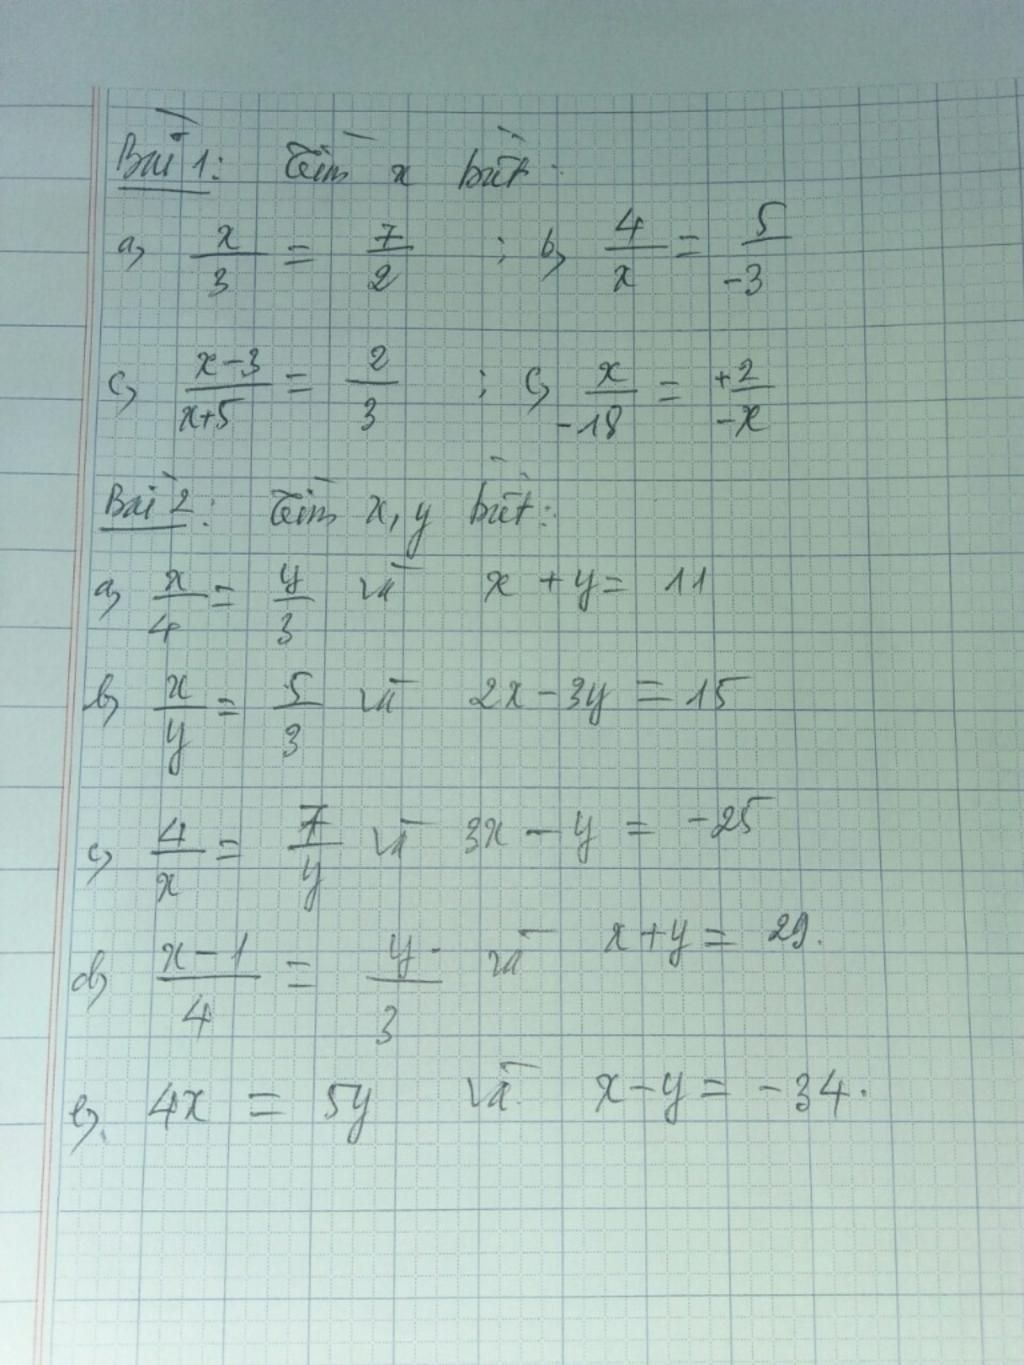 Bài 1: Tìm x biết:
a, x/3 = 7/2 ; b, 4/x = 5/-3
c, x-3/x+5 = 2/3 ; c, x/-18 = +2/-x
Bài 2: Tìm x, y biết:
a, x/4 = y/3 và x + y = 11
b, x/y = 5/3 và 2x - 3y = 15
c, 4/x = 7/y và 3x - y = -25
d, x-1/4 = y/3 và x + y = 29.
e, 4x = 5y và x - y = -34.